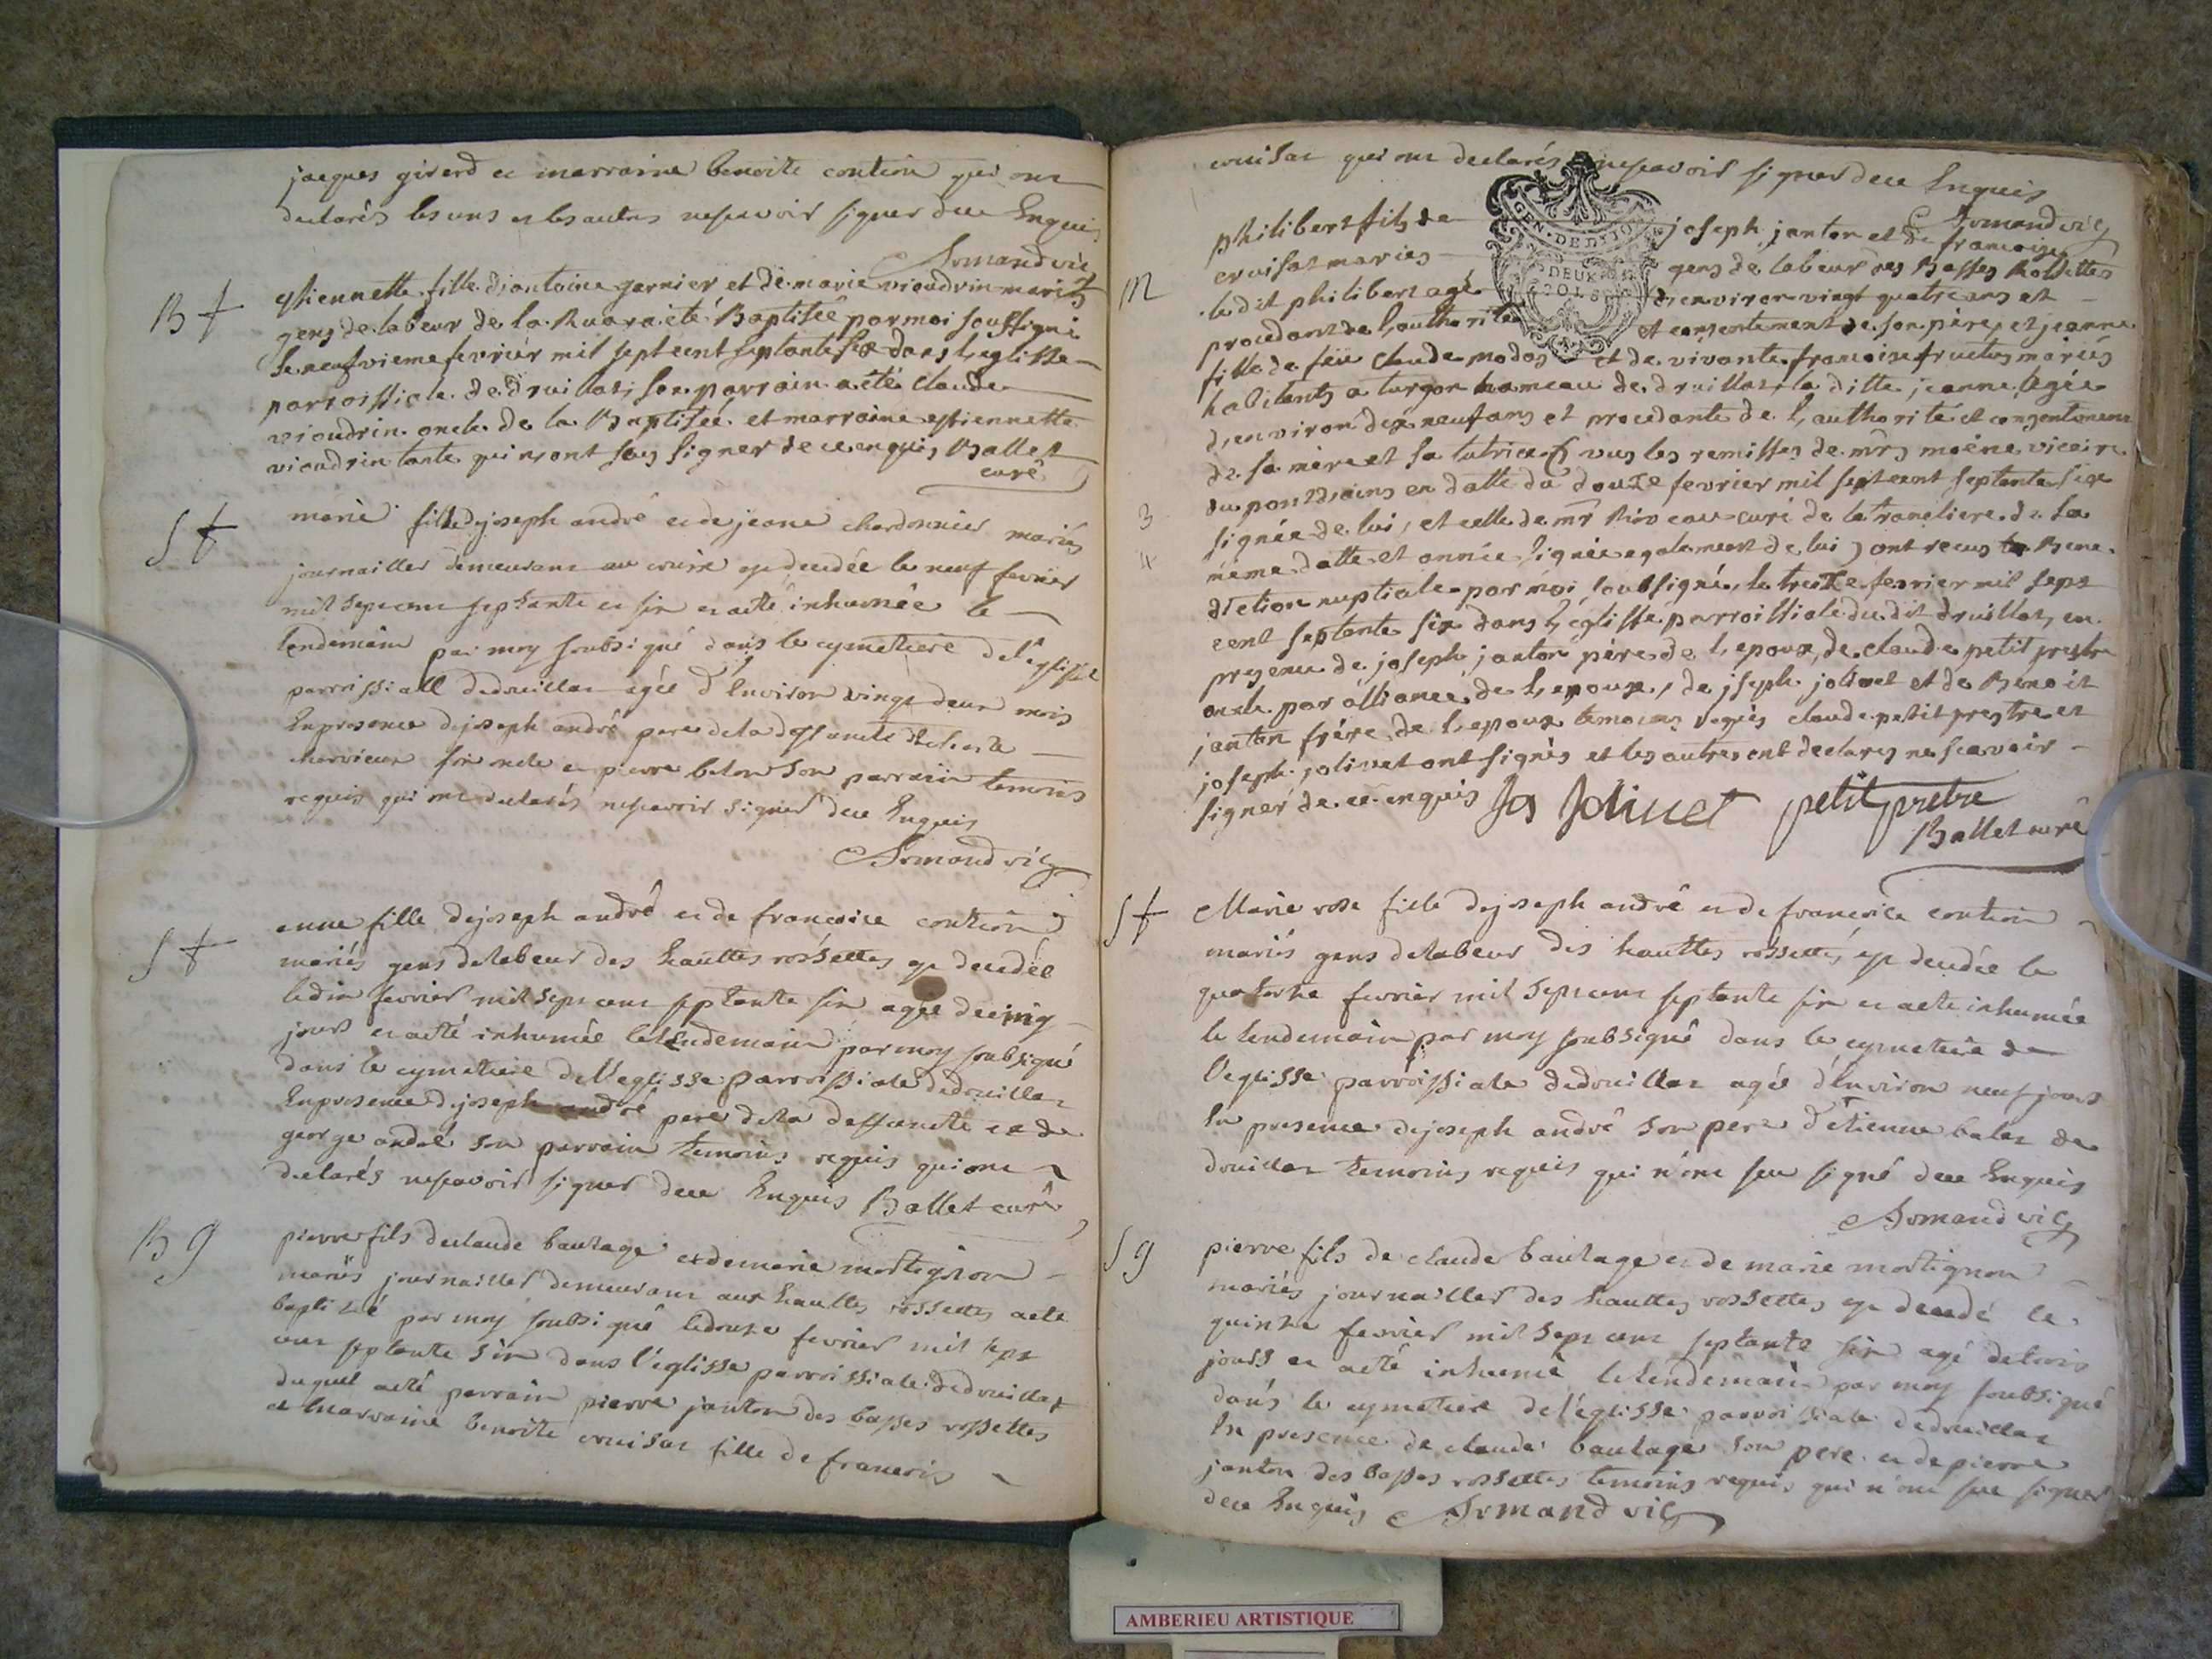 jacques girerd et marraine benoite contion qui ont
declarés les uns et les autres nesçavoir signer dece Enquis
Armand vic
B f
estiennette fille d,antoine garnier et de marie vieudrin mariés
gens de labeur de la Ruaz a eté Baptisée par moi soussigné
le neufvieme fevrier mil sept cent septante six dans l,eglisse
parroissiale de druillat, son parrain a eté claude
vieudrin oncle de la Baptisée et marraine estiennette
vieudrin tante qui n,ont sçus signer de ce enquis, Ballet
curé
S f
marie fille dejoseph andré et de jeane chardonnier mariés
journailler demeurant au est decedée le neuf fevrier
mil sept cent septante et six et a eté inhumée le
lendemain par moy soubsigné dans le cymetiere de l'eglisse
parroissialle dedruillat agée d'Environ vingt deux mois
Enpresence dejoseph andré pere dela deffuncte
son oncle et pierre belon son parrain temoins
requis qui ont declarés nesçavoir signer dece Enquis
Armand vic
S f
anne fille dejoseph andré et de francoise contion
mariés gens delabeur des hauttes rossettes est decedée
ledix fevrier mil sept cent septante six agée decinq
jours et a eté inhumée lelendemain par moy soubsigné
dans le cymetiere del'eglisse parroissiale dedruillat
Enpresence dejoseph andré pere dela deffuncte et de
george andré son parrain temoins requis qui ont
declarés nesçavoir signer dece Enquis Ballet curé
B g
pierre fils declaude bautage et demarie mortignon
mariés journailler demeurant aux hauttes rossettes a eté
baptizé par moy soubsigné ledouze fevrier mil sept
cent septante six dans l'églisse parroissiale dedruillat
duquel a eté parrain pierre janton des basses rossettes
et marraine benoite cruisat fille de francois
cruisat qui ont declarés nesçavoir signer dece Enquis
Armand vic
GEN. DE DIJON
DEUX SOLS
M
philibert fils de joseph janton et de francoise
cruisat mariés gens de labeur des Basses Rossettes
le dit philibert agé d,environ vingt quatre ans et
procedant de l,authorité et consentement de son père, et jeanne
fille de feü claude modas et de vivante francoise fructus mariés
habitants a turgon hameau de druillat, la ditte jeanne agée
d,environ dix neuf ans et procedante de l,authorité et consentement
de sa mère et sa tutrice, vus les remisses de mrs moêne vicaire
3
du pont d,ains en datte du douze fevrier mil sept cent septante six
4
signée de lui, et celle de mr Riveaux curé de la trancliere de la
même datte et année signée egalement de lui) ont recus la Bene-
diction nuptiale par moi soubsigné, le treize fevrier mil sept
cent septante six dans l,églisse parroissiale du dit druillat, en
presence de joseph janton père de l,epoux, de claude petit prestre
oncle par alliance de l,epouse, de jseph jolivet et de Benoit
janton frère de l,epoux temoins requis claude petit prestre et
joseph jolivet ont signés et les autres ont declarés ne sçavoir
signer de ce enquis Jos Jolivet petit pretre
Ballet curé
S f
Marie rose fille dejoseph andré et de francoise contion
mariés gens delabeur des hauttes rossettes est decedée le
quatorze fevrier mil sept cent septante six et a eté inhumée
le lendemain par moy soubsigné dans le cymetiere de
l'eglisse parroissiale dedruillat agée d'Environ neuf jours
En presence dejoseph andré son pere d'etienne balet de
druillat temoins requis qui n'ont sceu signé dece Enquis
Armand vic
S g
pierre fils de claude bautage et de marie mortignon
mariés journailler des hauttes rossettes est decedé le
quinze fevrier mil sept cent septante six agé detrois
jours et a eté inhumé lelendemain par moy soubsigné
dans le cymetiere de l'églisse parroissiale dedruillat
En presence de claude bautage son pere et de pierre
janton des basses rossettes temoins requis qui n'ont sceu signer
dece Enquis Armand vic
AMBERIEU ARTISTIQUE